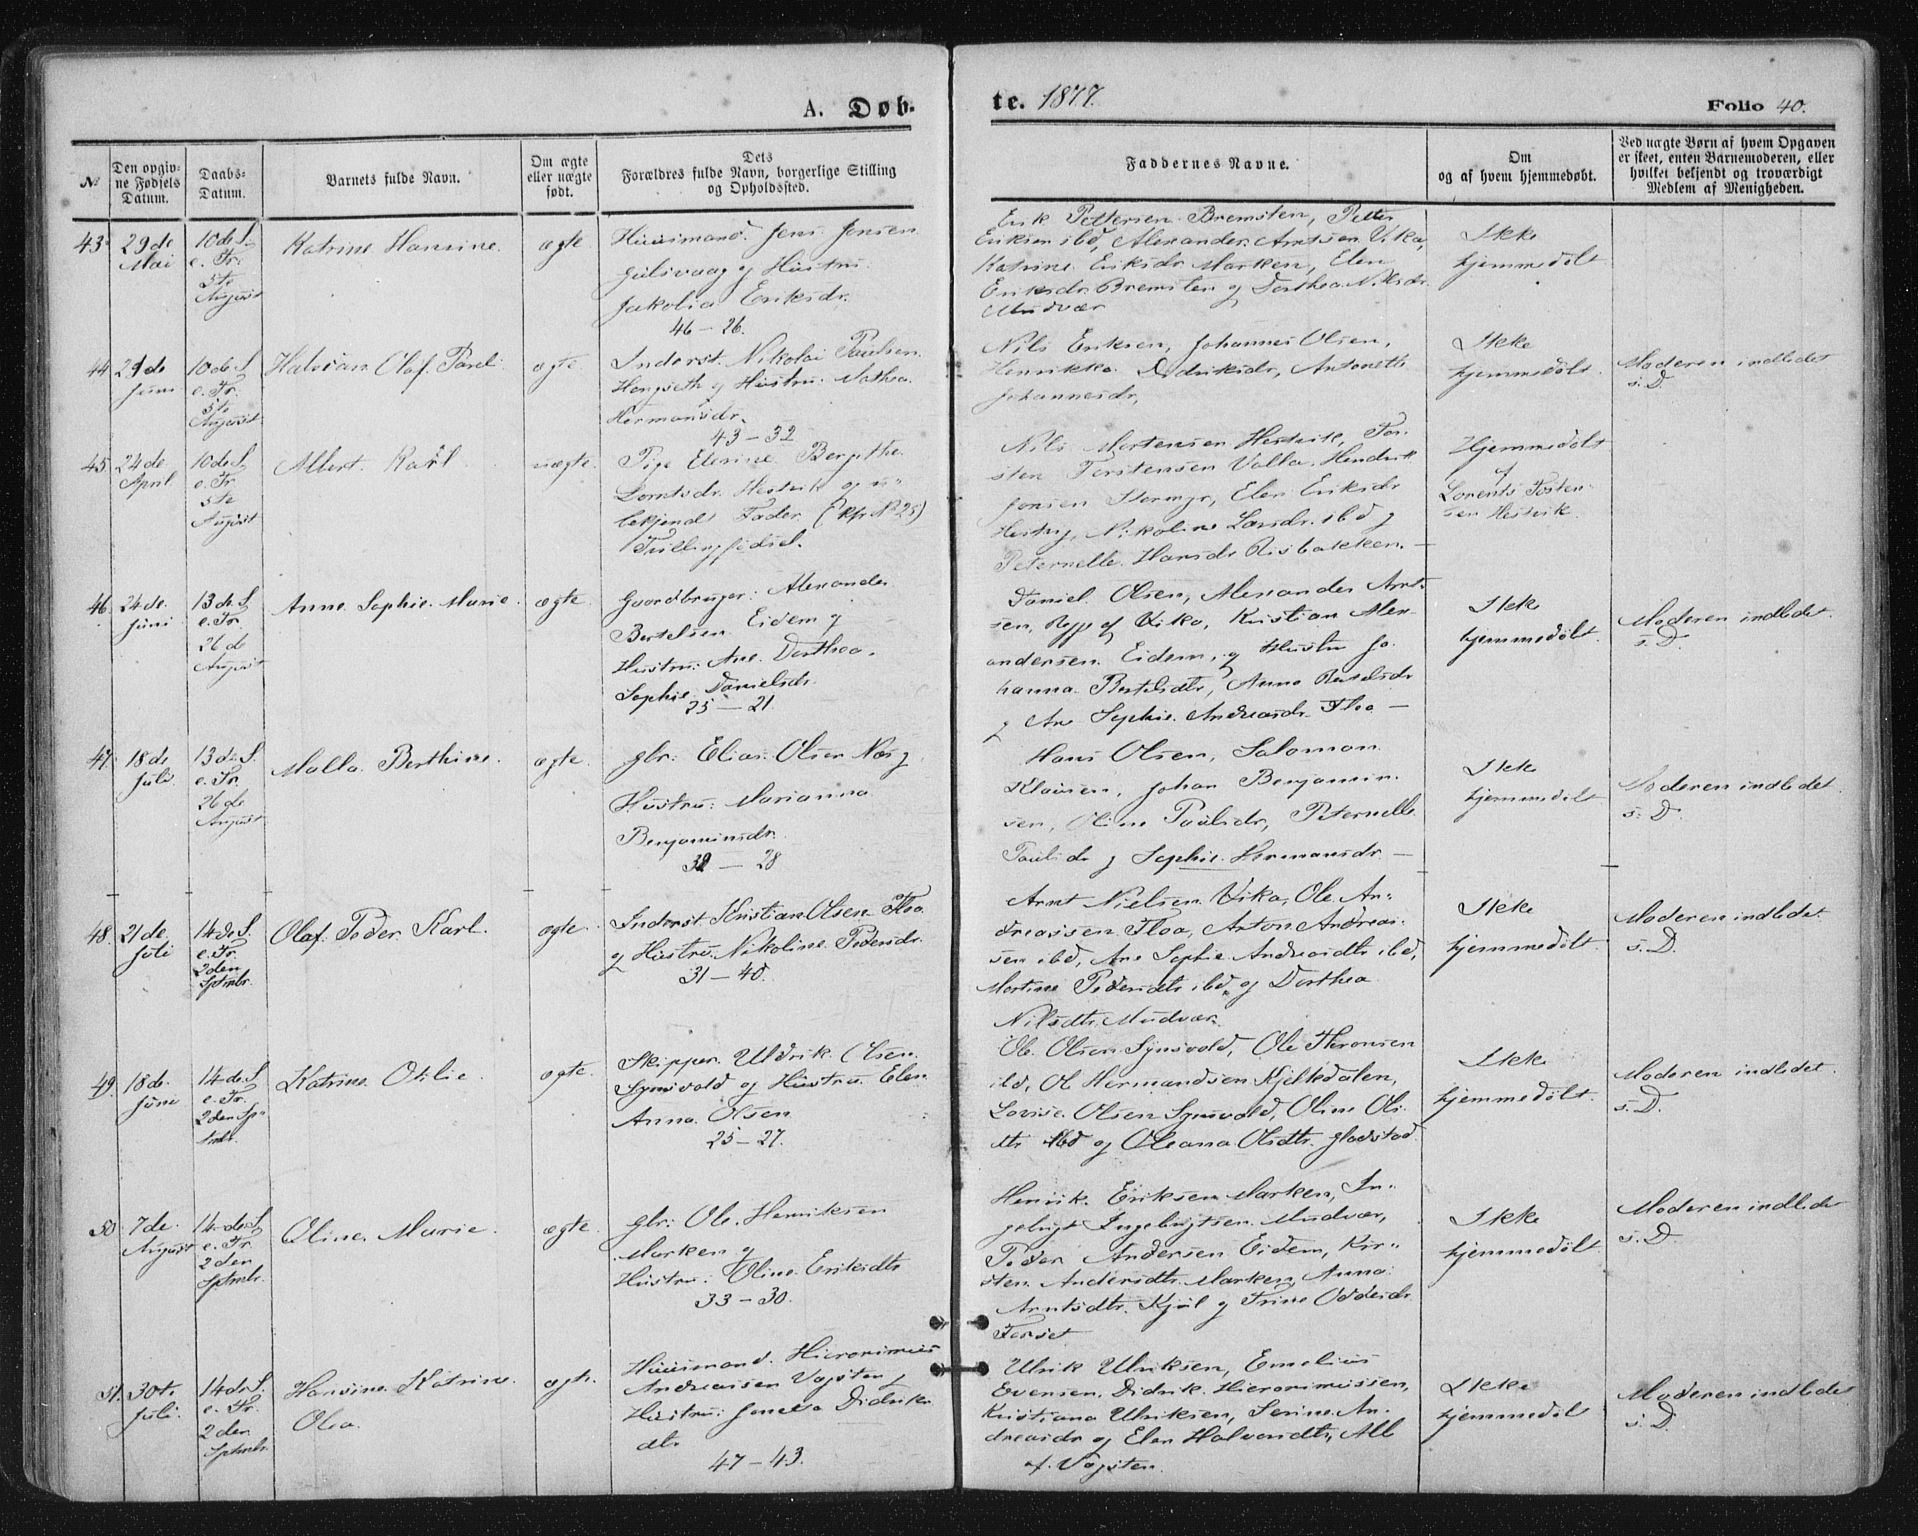 A. Døb-
te. 1877.
Folio 40.
№
Den opgiv-
ne Fødsels
Datum.
Daabs-
Datum.
Barnets fulde Navn.
Om ægte
eller uægte
født.
Dets
Forældres fulde Navn, borgerlige Stilling
og Opholdssted.
Faddernes Navne.
Om
og af hvem hjemmedøbt.
Ved uægte Børn af hvem Opgaven
er skeet, enten Barnemoderen, eller
hvilket bekjendt og troværdigt
Medlem af Menigheden.
43
29de
Mai
10de S.
e. Tr.
5te
August
Katrine Hansine
ægte
Huusmand Jens Jensen
og Hustru
Jakobia Eriksdr.
46 – 26.
Erik Pettersen Bremsten, Petter
Eriksen ibd, Alexander Arntsen Vika,
Katrine Eriksdr Marken, Elen
Eriksdr Bremsten og Dorthea Nilsdr
Mudvær
Ikke
hjemmedøbt
44
29de
Juni
10de S
e. Tr.
5te
August
Olaf
ægte
Inderst Nikolai Paulsen
og Hustru Mathea
Hermansdr.
43 – 32
Nils Eriksen, Johannes Olsen,
Henrikka Didriksdr, Antonette
Johannesdr,
Ikke
hjemmedøbt.
Moderen indledet
s. D.
45
24de
April
10de S
e. Tr.
5te
August
Albert Karl
uægte
Pige Elerine Bergithe
Lorntsdr Hestvik og u-
bekjendt Fader (kfr № 25)
Tvillingfødsel.
Nils Mortensen Hestvik, Tor-
sten Torstensen Valla, Hendrik
Jonsen Stormyr, Elen Eriksdr
Hestvig, Nikoline Larsdr ibd og
Peternelle Hansdr Risbakken. –
Hjemmedøbt
af
Lorents Tosten-
sen Hestvik
46
24de
Juni
13de S
e. Tr.
26de
August
Anne Sophie Marie
ægte
Gaardbruger Alexander
Bertelsen Eidem og
Hustru: Ane Dorthea
Sophie Danielsdr
25 – 21
Daniel Olsen, Alexander Arnt-
sen, af Vika, Kristian Alex-
andersen Eidem, og Hustru Jo-
hanna Bertelsdtr, Anne
og Ane Sophie Andreasdr Floa –
Ikke
hjemmedøbt.
Moderen indledet.
s. D.
47.
18de
Juli
13de S.
e. Tr.
26de
August
Malla Berthine.
ægte.
gbr: Elias Olsen Næs og
Hustru: Marianna
Benjaminsdr.
– 28
Hans Olsen, Salomon
Klausen, Johan Benjamin-
sen, Oline Paulsdr, Peternelle
Paulsdr og Sophie Hermansdr –
Ikke
hjemmedøbt
Moderen indledet.
s. D.
48.
21de
Juli
14de S.
e. Tr.
2den
Sptmbr.
Olaf Peder Karl.
ægte
Inderst Kristian Olsen Floa
og Hustru Nikoline Pedersdr.
31 – 40.
Arnt Nielsen Vika, Ole An-
dreassen Floa, Anton Andreas-
sen ibd, Ane Sophie Andreasdtr ibd,
Martine Pedersdtr ibd og Dorthea
Nilsdtr Mudvær.
Ikke
hjemmedøbt
Moderen indledet.
s. D.
49
18de
Juni
14de S
e. Tr.
2den Sp-
tmbr.
Katrine Otilie.
ægte.
Skipper Uldrik Olsen
Synsvold og Hustru Elen
Anna Olsen
25 – 27.
Ole Olsen Synsvold, Ole
ibd, Ol Hermandsen
Lovise Olsen Synsvold, Oline Ols-
dtr ibd og Oleana Olsdtr. Gladstad
Ikke
hjemmedøbt.
Moderen indledet.
s. D.
50
7de
August
14de S
e. Tr.
2den
Sptmbr.
Oline Marie.
ægte
gbr: Ole Henriksen
Marken og
Hustru: Oline Eriksdtr
33 – 30.
Henrik Eriksen Marken, In-
gebrigt Ingebrigtsen Mudvær,
Peder Andersen Eidem, Kir-
sten Andersdtr. Marken, Anna
Arntsdtr. Kjøl og Trine
Forset
Ikke
hjemmedøbt
Moderen indledet
s. D.
51.
30te
Juli.
14de S.
e. Tr.
2den
Sptmbr.
Hansine Katrine
Olea
ægte
Huusmand Hieronimus
Andreassen Vegsten og
Hustru: Didriks
dtr
47 – 43.
Ulrik Ulriksen, Emelius
Evensen, Didrik Hieronimussen,
Kristiana Ulriksen, Serine An-
dreasdr og Elen Halvorsdtr, All
af Vegsten.
Ikke
hjemmedøbt
Moderen indledet
s. D.